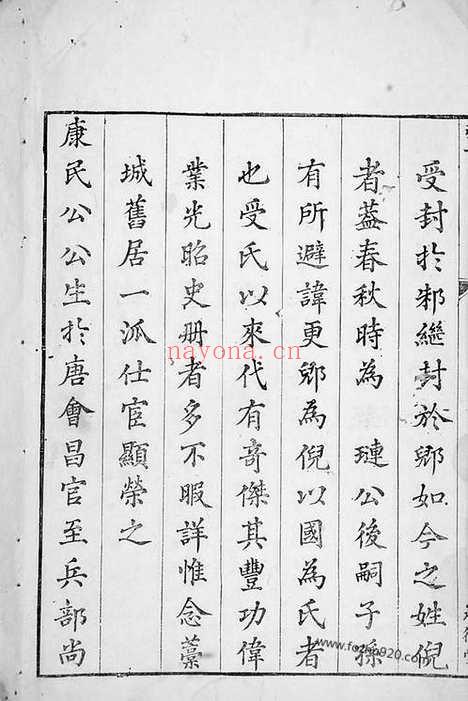 受封於邾繼封於郳如今之姓倪
者葢春秋時為 璉公後嗣子孫
有所避諱更郳為倪以國為氏者
也受氏以來代有竒傑其豐功偉
業光昭史册者多不暇詳惟念藁
城舊居一派仕宦顯榮之
康民公公生於唐會昌官至兵部尚
nayona.cn
www.fozhu920.com